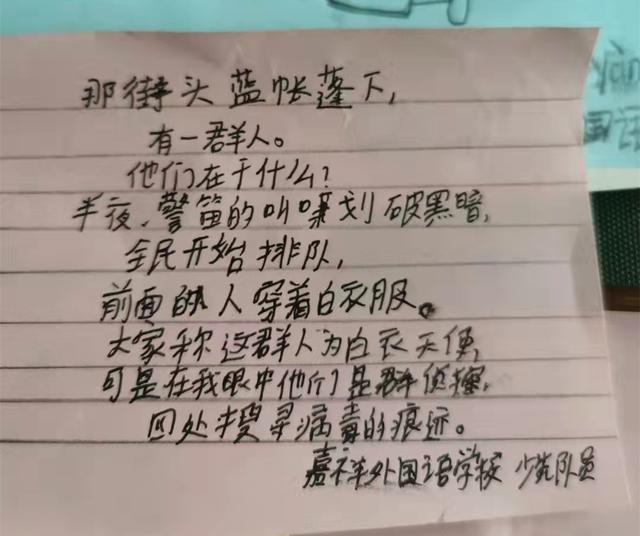 那街头蓝帐蓬下，
有一群人。
他们在干什么？
半夜、警笛的叫嗓划破黑暗，
全民开始排队，
前面的人穿着白衣服。
大家称这群人为白衣天使，
可是在我眼中他们是群侦探，
四处搜寻病毒的痕迹。
嘉祥外国语学校 少先队员